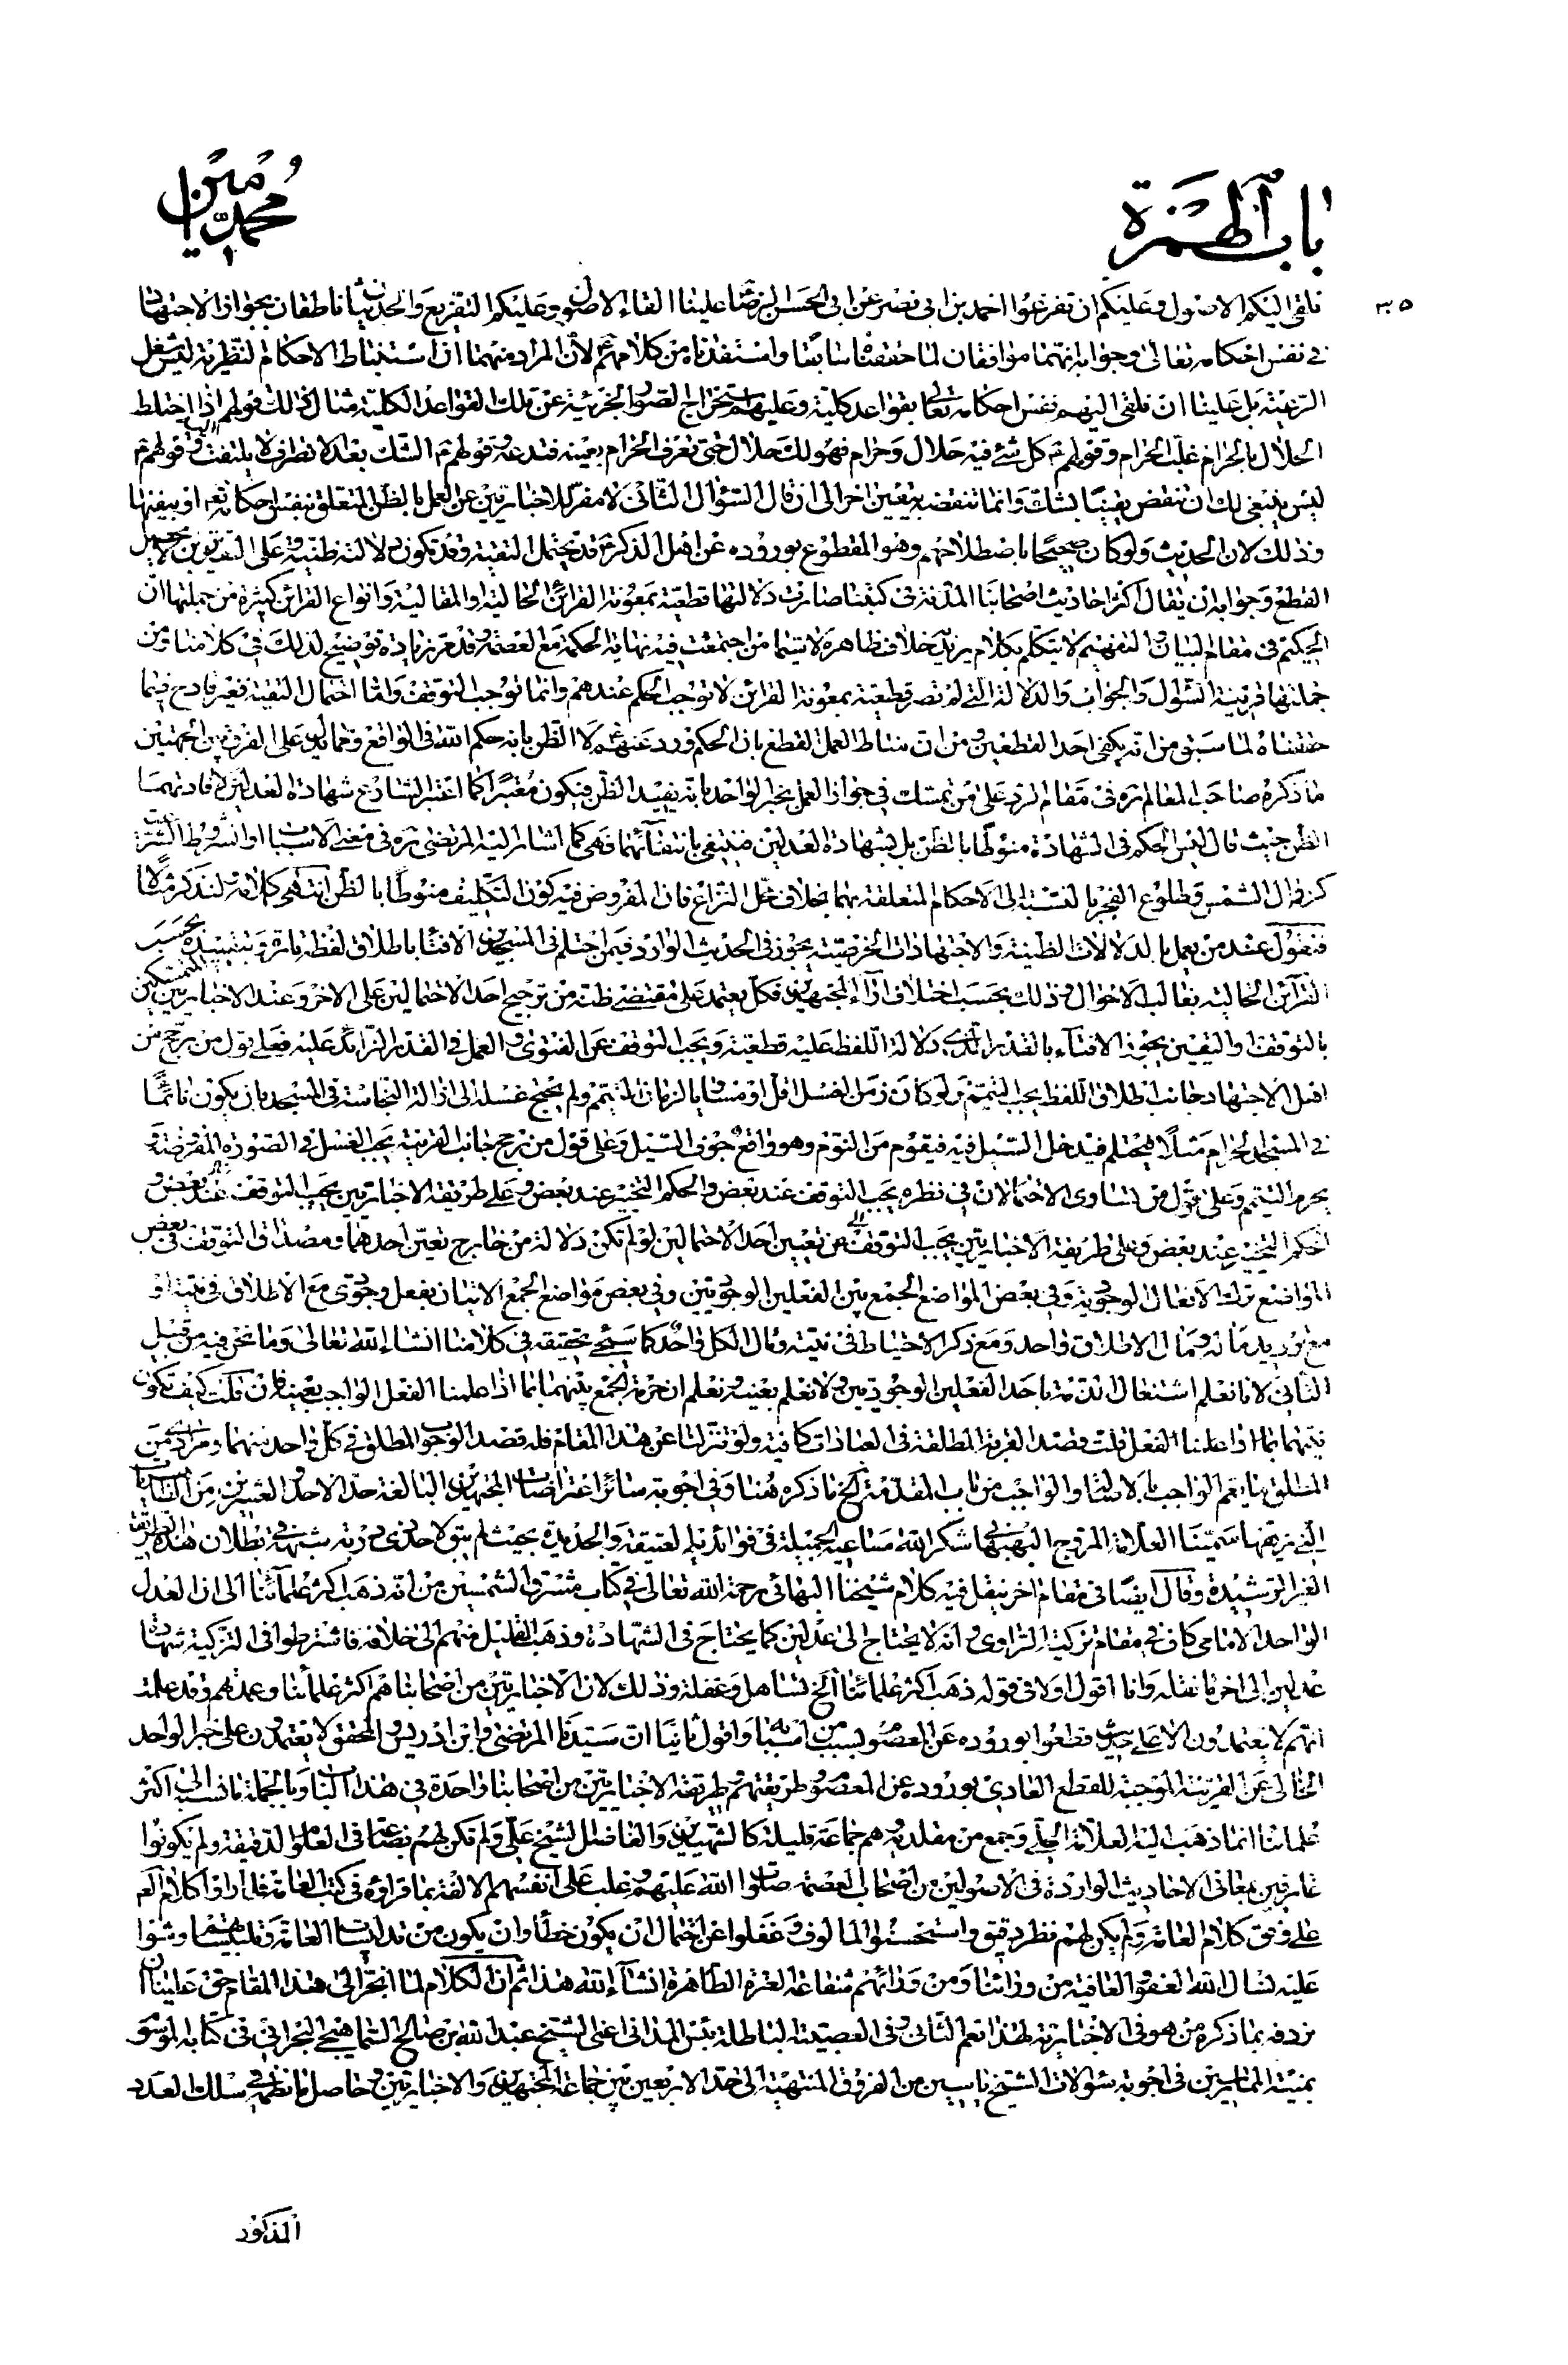 باب الهمزة
محمد امين
٣٥
نلقي اليكم الاصول وعليكم ان تفرعوا احمد بن ابي نصر عن ابي الحسن الرضا علينا القاء الاصول وعليكم التفريع والحديثان ناطقان بجواز الاجتهاد
في نفس احكامه تعالى وجوابه انهما موافقان لما حققنا سابقا واستفدناه من كلامهم لأن المراد منهما ان استنباط الاحكام النظرية ليس شغل
الرعية بل علينا ان نلقي اليهم نفس احكامه تعالى بقواعد كلية وعليهم استخراج الصور الجزئية عن تلك القواعد الكلية مثال ذلك قولهم اذا اختلط
الحلال بالحرام غلب الحرام وقولهم كل شئ فيه حلال وحرام فهو لك حلال حتى تعرف الحرام بعينه فتدعه وقولهم الشك بعد الانصراف لا يلتفت اليه وقولهم
ليس ينبغي لك ان تنقض يقينا بشك وانما تنقضه بيقين اخر الى ان قال السؤال الثاني لا مفر للاخباريين عن العمل بالظن المتعلق بنفس احكامه تعالى او بنفيها
وذلك لان الحديث ولو كان صحيحا باصطلاحهم وهو المقطوع بوروده عن اهل الذكر قد يحتمل التقية وقد تكون دلالته ظنية وعلى التقديرين لا يحصل
القطع وجوابه ان يقال اكثر احاديث اصحابنا المدونة في كتبنا صارت دلالتها قطعية بمعونة القرائن الحالية او المقالية وانواع القرائن كثيرة من جملتها ان
الحكيم في مقام البيان والتفهيم لا يتكلم بكلام يريد خلاف ظاهره لا سيما من اجتمعت فيه نهاية الحكمة مع العصمة وقد مر زيادة توضيح لذلك في كلامنا ومن
جملتها قرينة السؤال والجواب والدلالة التي لم تصر قطعية بمعونة القرائن لا توجب الحكم عندهم وانما توجب التوقف واما احتمال التقية فغير قادح فيما
حققناه لما سبق من انه يكفي احد القطعين ومن ان مناط العمل القطع بان الحكم ورد عنهم لا الظن بانه حكم الله في الواقع ومما يدل على الفرق بين الجهتين
ما ذكره صاحب المعالم ره في مقام الرد على من تمسك في جواز العمل بخبر الواحد بانه يفيد الظن فيكون معتبرا كما اعتبر الشارع شهادة العدلين لافادتهما
الظن حيث قال ليس الحكم في الشهادة منوطا بالظن بل بشهادة العدلين فينتفي بانتفائهما فهي كما اشار اليه المرتضى ره في معنى الاسباب او الشروط الشرعية
كزوال الشمس وطلوع الفجر بالنسبة الى الاحكام المتعلقة بهما بخلاف محل النزاع فان المفروض فيه كون التكليف منوطا بالظن انتهى كلامه لنذكر مثالا
فنقول عند من يعمل بالدلالات الظنية والاجتهادات الخرصية يجوز في الحديث الوارد فيمن احتلم في المسجدين الافتاء باطلاق لفظه تارة وبتقييده بحسب
القرائن الحالية بغالب الاحوال وذلك بحسب اختلاف آراء المجتهدين فكل يعتمد على مقتضى ظنه من ترجيح احد الاحتمالين على الاخر وعند الاخباريين المتمسكين
بالتوقف واليقين يجوز الافتاء بالقدر الذي دلالة اللفظ عليه قطعية ويجب التوقف عن الفتوى والعمل في القدر الزائد عليه فعلى قول من يرجح من
اهل الاجتهاد جانب اطلاق اللفظ يجب التيمم ولو كان زمن الغسل اقل او مساويا لزمان التيمم ولم يحتج غسله الى ازالة النجاسة في المسجد بان يكون نائما
في المسجد الحرام مثلا فيحتلم فيدخل السيل فيه فيقوم من النوم وهو واقع جوف السيل وعلى قول من يرجح جانب القرينة يجب الغسل في الصورة المفروضة و
يحرم التيمم وعلى قول من تساوى الاحتمالان في نظره يجب التوقف عند بعض والحكم التخيير عند بعض وعلى طريقة الاخباريين يجب التوقف عند بعض و
الحكم التخيير عند بعض وعلى طريقة الاخباريين يجب التوقف عن تعيين احد الاحتمالين لو لم تكن دلالة من خارج تعين احدهما ومصداق التوقف في بعض
المواضع ترك الافعال الوجودية وفي بعض المواضع الجمع بين الفعلين الوجوديين وفي بعض مواضع الجمع الاتيان بفعل وجودي مع الاطلاق في نيته او
مع ترديد ما له ومآل الاطلاق واحد ومع ذكر الاحتياط في نيته ومآل الكل واحد كما سيجئ تحقيقه في كلامنا انشاء الله تعالى وما نحن فيه من قبيل
الثاني لانا نعلم اشتغال الذمة باحد الفعلين الوجوديين ولا نعلم بعينه ونعلم ان حرمة الجمع بينهما انما اذا علمنا الفعل الواجب بعينه فان قلت كيف تكون
نيتهما بما اذا علمنا الفعل قلت قصد القربة المطلقة في العبادات كافية ولو تنزلنا عن هذا المقام فله قصد الوجوب المطلق في كل واحد منهما ومرادي من
المطلق ما يعم الواجب بالاصالة والواجب من باب المقدمة الخ ما ذكره هنا وفي اجوبة سائر اعتراضات المجتهدين البالغة حد الاحد والعشرين من
التي زيفها سمينا العلامة المروج البهبهاني شكر الله مساعيه الجميلة في فوائديه العتيقة والجديدة بحيث لم يبق لاحد ذي دربة شبهة في بطلان هذه الطريقة
الغير الرشيدة وقال ايضا في مقام اخر ينقل فيه كلام شيخنا البهائي رحمة الله تعالى في كتاب مشرق الشمسين من انه ذهب اكثر علمائنا الى ان العدل
الواحد الامامي كاف في مقام تزكية الراوي وانه لا يحتاج الى عدلين كما يحتاج في الشهادة وذهب القليل منهم الى خلافه فاشترطوا في التزكية شهادة
عدلين الى اخر ما نقله وانا اقول اولا في قوله ذهب اكثر علمائنا الخ تساهل وغفلة وذلك لان الاخباريين من اصحابنا هم اكثر علمائنا وعمدهم وقد علمت
انهم لا يعتمدون الا على حديث قطعوا بوروده عن المعصوم بسبب من اسبابه واقول ثانيا ان سيدنا المرتضى وابن ادريس والمحقق لا يعتمدون على خبر الواحد
الخالي عن القرينة الموجبة للقطع العادي بوروده عن المعصوم وطريقتهم وطريقة الاخباريين من اصحابنا واحدة في هذا الباب وبالجملة ما نسب الى اكثر
علمائنا انما ذهب اليه العلامة الحلي وجمع من مقلديه هم جماعة قليلة كالشهيدين والفاضل الشيخ علي ولم تكن لهم بضاعة في العلوم الدقيقة ولم يكونوا
عارفين بمعاني الاحاديث الواردة في الاصولين من اصحاب العصمة صلوات الله عليهم وغلب على انفسهم الالفة بما قراؤه في كتب العامة فلما راوا كلام العم
على وفق كلام العامة ولم يكن لهم نظر دقيق واستحسنوا المالوف وغفلوا عن احتمال ان يكون خطأ وان يكون من تدليسات العامة وتلبيساتهم ومشوا
عليه نسال الله العفو والعافية من ورائنا ومن ورائهم شفاعة العترة الطاهرة انشاء الله هذا ثم ان الكلام لما انجر الى هذا المقام حق علينا ان
نردفه بما ذكره من هو في الاخبارية لهذا نعم الثاني وفي العصبية الباطلة بئس المداني اعني الشيخ عبد الله بن صالح السماهيجي البحراني في كتابه الموسوم
بمنية الممارسين في اجوبة سؤالات الشيخ ياسين من الفروق المنتهية الى حد الاربعين بين جماعة المجتهدين والاخباريين وحاصل ما نظمه في سلك العدد
المذكور